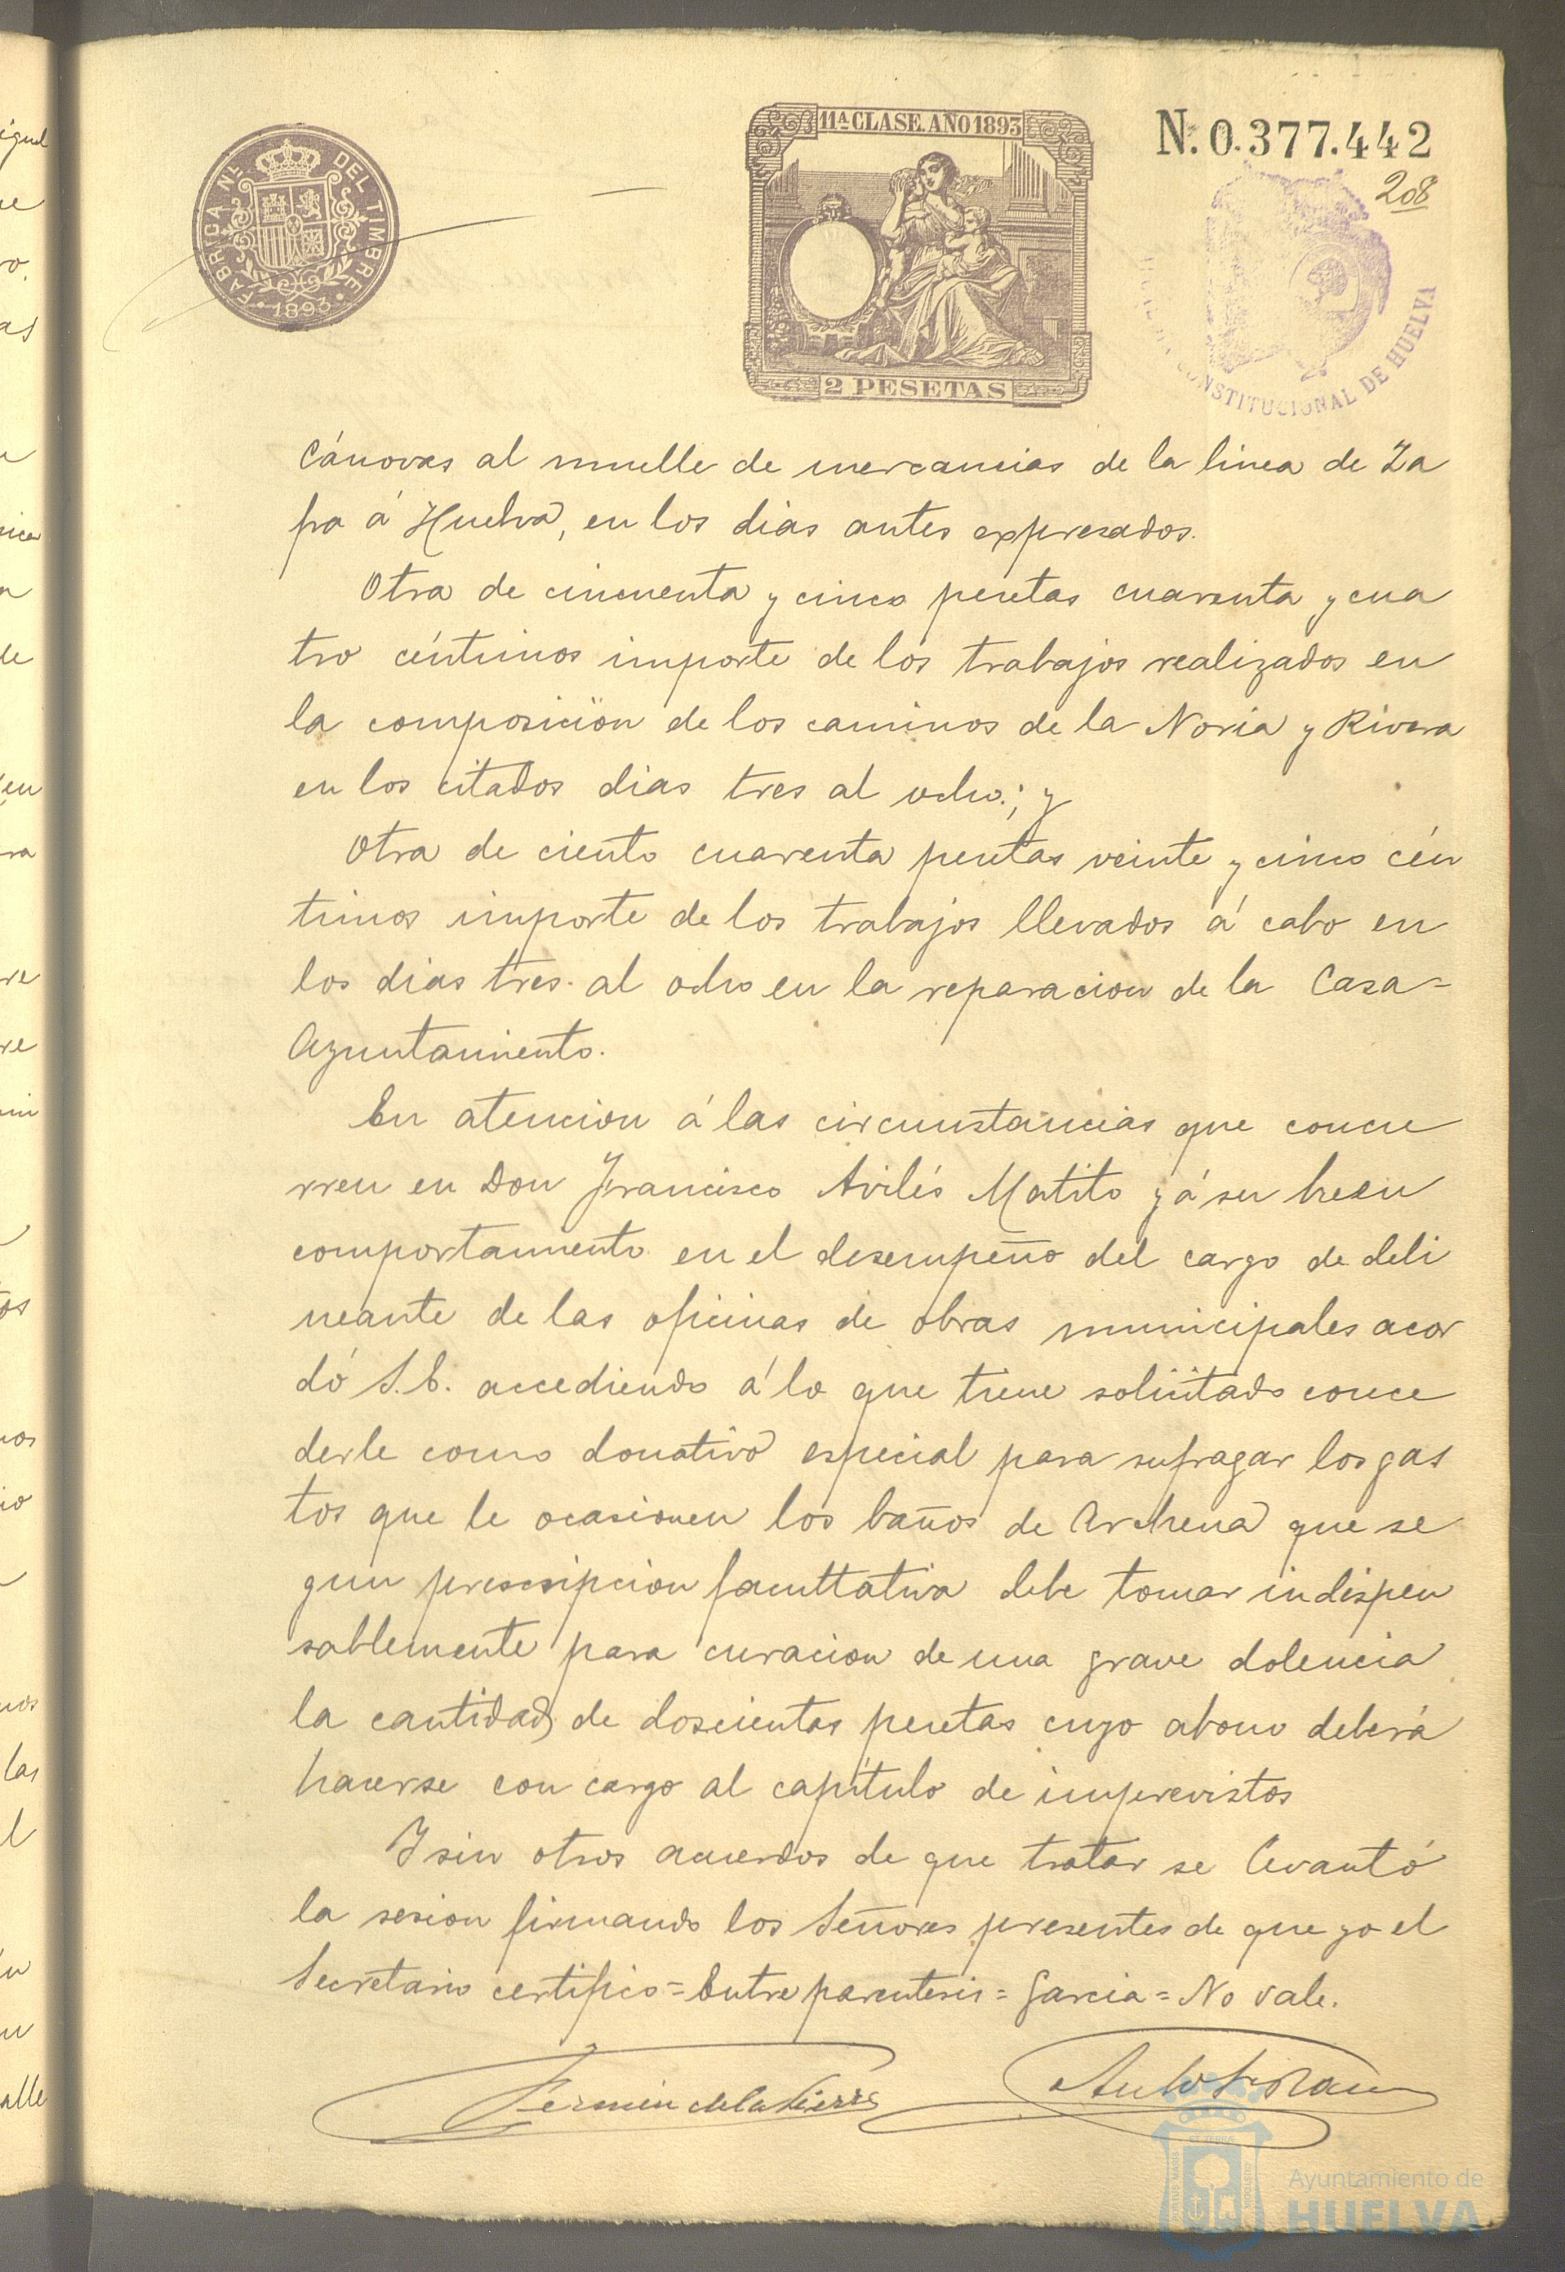 FABRICA NL. DEL TIMBRE
1893
11ª CLASE. AÑO 1893
2 PESETAS
N. 0.377.442
208
CONSTITUCIONAL DE HUELVA
Cánovas al muelle de mercancias de la linea de Za
fra á Huelva, en los dias antes expresados.
Otra de cincuenta y cinco pesetas cuarenta y cua
tro céntimos importe de los trabajos realizados en
la composición de los caminos de la Noria y Rivera
en los citados dias tres al ocho.; y
Otra de ciento cuarenta pesetas veinte y cinco cén
timos importe de los trabajos llevados á cabo en
los dias tres al ocho en la reparacion de la Casa=
Ayuntamiento.
En atencion á las circunstancias que concu
rren en Don Francisco Avilés Matito y á su buen
comportamiento en el desempeño del cargo de deli
neante de las oficinas de obras municipales acor
dó S.E. accediendo á lo que tiene solicitado conce
derle como donativo especial para sufragar los gas
tos que le ocasionen los baños de Archena que se
gun prescripcion facultativa debe tomar indispen
sablemente para curacion de una grave dolencia
la cantidad de doscientas pesetas cuyo abono deberá
hacerse con cargo al capítulo de imprevistos
Y sin otros acuerdos de que tratar se levantó
la sesion firmando los Señores presentes de que yo el
Secretario certifico = Entre parentesis = Garcia = No vale.
Fermin de la Sierra
Ayuntamiento de
HUELVA